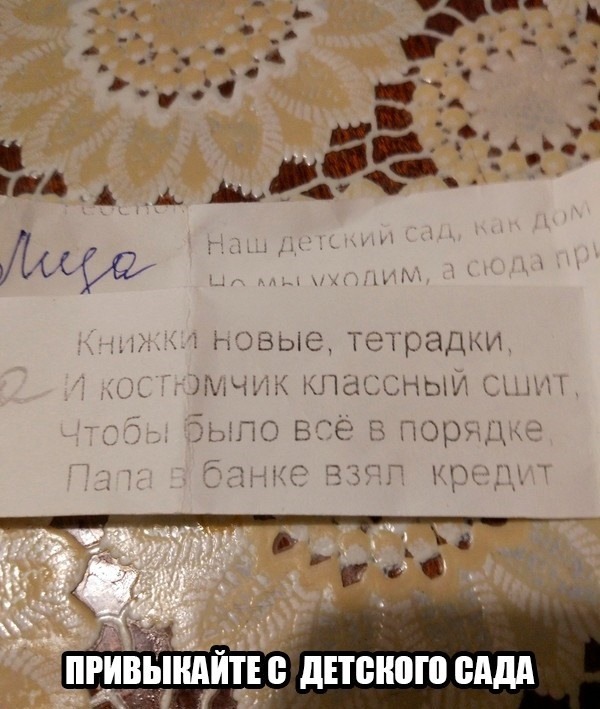 Лиза
Наш детский сад, как дом
Но мы уходим, а сюда при
Книжки новые, тетрадки,
И костюмчик классный сшит,
Чтобы было всё в порядке,
Папа в банке взял кредит
ПРИВЫКАЙТЕ С ДЕТСКОГО САДА